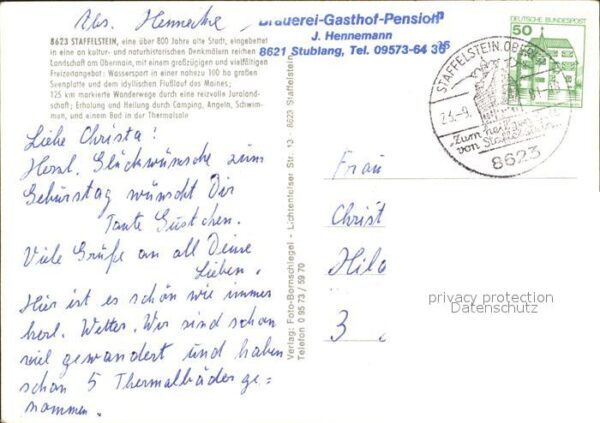 Abs. Hennecke,
Brauerei-Gasthof-Pension
J. Hennemann
8621 Stublang, Tel. 09573-64 36
8623 STAFFELSTEIN, eine über 800 Jahre alte Stadt, eingebettet
in eine an kultur- und naturhistorischen Denkmälern reichen
Landschaft am Obermain, mit einem großzügigen und vielfältigen
Freizeitangebot: Wassersport in einer nahezu 100 ha großen
Seenplatte und dem idyllischen Flußlauf des Maines;
125 km markierte Wanderwege durch eine reizvolle Juraland-
schaft; Erholung und Heilung durch Camping, Angeln, Schwim-
men, und einem Bad in der Thermalsole
Liebe Christa!
Herzl. Glückwünsche zum
Geburtstag wünscht Dir
Tante Gustchen.
Viele Grüße an all Deine
Lieben.
Hier ist es schön wie immer
herl. Wetter. Wir sind schon
viel gewandert und haben
schon 5 Thermalbäder ge=
nommen.
Verlag: Foto-Bornschlegel - Lichtenfelser Str. 13 - 8623 Staffelstein
Telefon 0 95 73 / 59 70
50
DEUTSCHE BUNDESPOST
STAFFELSTEIN, OBERFR
23.-9.
"Zum
von Staffelstein"
8623
Frau
Christ
Hilo
3
privacy protection
Datenschutz